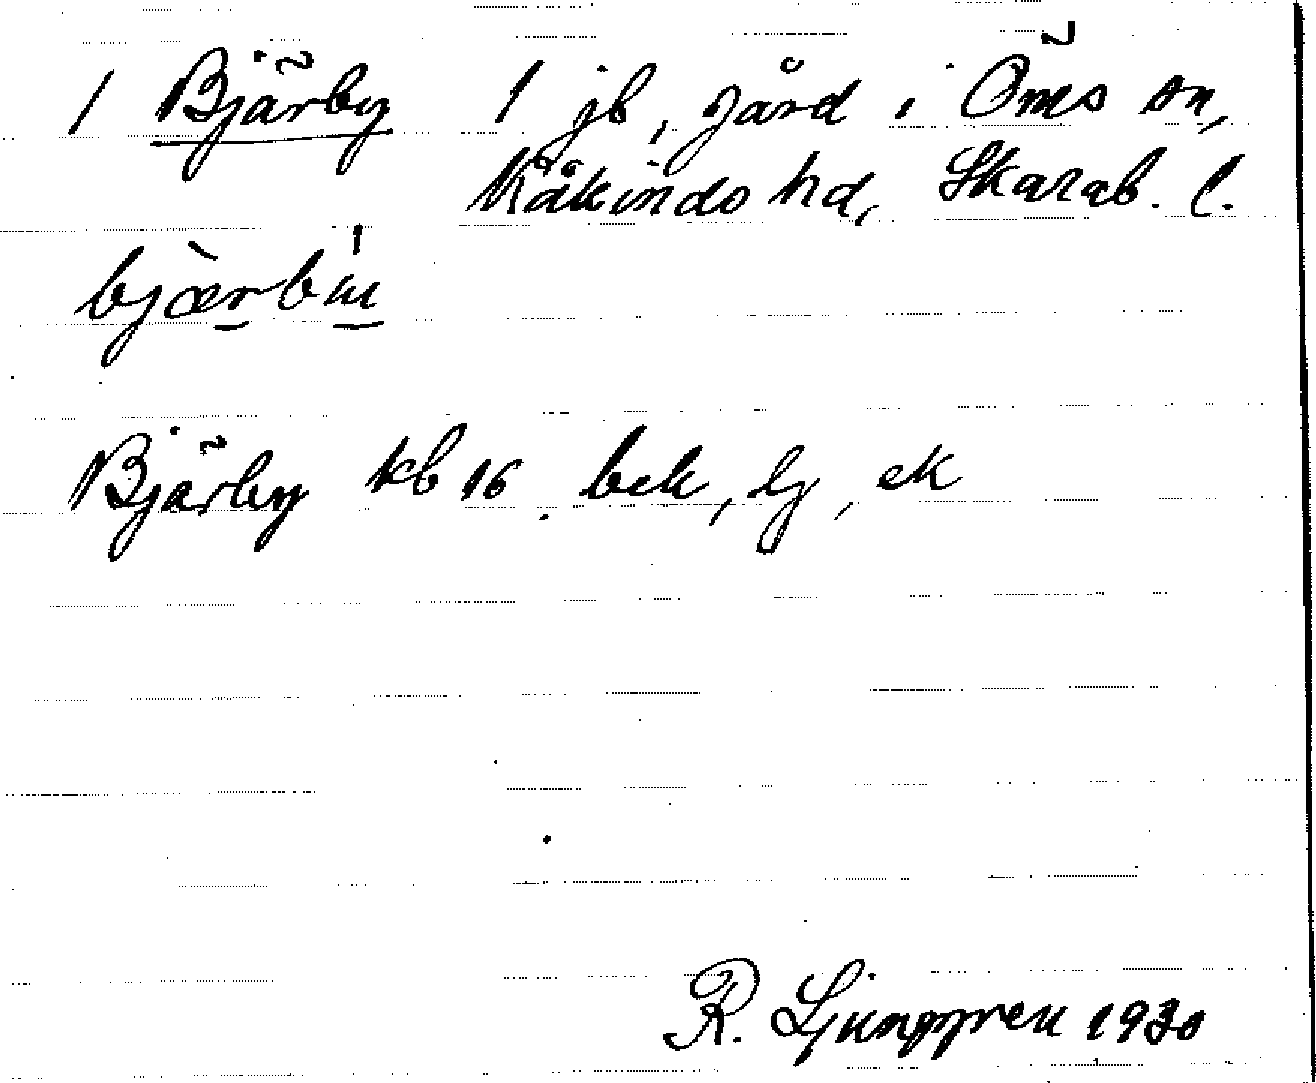 1 Bjärby 1 jb, gård i Öms sn,
Kåkinds hd, Skarab. l.
bjærbm
Bjärby kb 16. bek, lg, ek
R. Ljunggren 1930